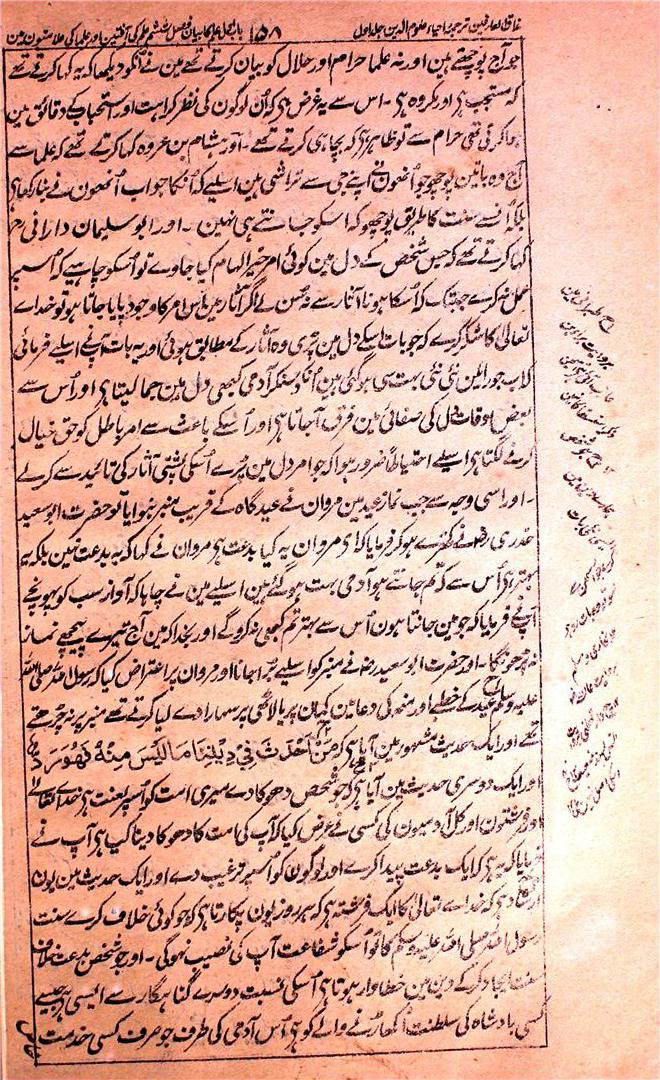 مذاق العارفین ترجمہ احیاء علوم الدین جلد اول ۱۵۸ باب اول علم کا بیان فصل ششم علم کی آفتیں اور علما کی علامتوں مین
جو آج پوچھتے ہین اور نہ علما حرام اور حلال کو بیان کرتے تھے مین نے انکو دیکھا کہ یہ کہا کرتے تھے
کہ مستحب ہی اور مکروہ ہی ۔ اس سے یہ غرض ہی کہ اُن لوگون کی نظر کراہت اور استحباب کے دقائق مین
ہوا کرتی تھی حرام سے تو ظاہر ہی کہ بچا ہی کرتے تھے ۔ اور ہشام بن عروہ کہا کرتے تھے کہ علما سے
آج وہ باتین نہ پوچھو جو اُنھون نے اپنے جی سے تراشی ہین اسلیے کہ اُنکا جواب اُنھون نے بنا رکھا ہی
بلکہ اُنسے سنت کا طریق پوچھو کہ اسکو جانتے ہی نہین ۔ اور ابو سلیمان دارانی رح
کہا کرتے تھے کہ جس شخص کے دل مین کوئی امر خیر الہام کیا جاوے تو اُسکو چاہیے کہ اُسپر
عمل نہ کرے جبتک کہ اُسکا ہونا آثار سے نہ سُن لے اگر آثار مین اس امر کا وجود پایا جاتا ہو تو خداے
تعالیٰ کا شکر کرے کہ جو بات اسکے دل مین پڑی وہ آثار کے مطابق ہوئی اور یہ بات آپنے اسلیے فرمائی
کہ اب جو رائین نئی نئی بہت سی ہو گئی ہین اُنکو سنکر آدمی کبھی دل مین جما لیتا ہی اور اُس سے
بعض اوقات دل کی صفائی مین فرق آ جاتا ہی اور اُسکے باعث سے امر باطل کو حق خیال
کرنے لگتا ہی اسلیے احتیاطاً ضرور ہوا کہ جو امر دل مین پڑے اُسکی پشتی آثار کی تائید سے کرلے
۔ اور اسی وجہ سے جب نماز عید مین مروان نے عیدگاہ کے قریب منبر بنوایا تو حضرت ابو سعید
خدری رض نے کھڑے ہو کر فرمایا کہ ای مروان یہ کیا بدعت ہی مروان نے کہا کہ یہ بدعت نہین بلکہ یہ
بہتر ہی اُس سے کہ تم جانتے ہو آدمی بہت ہو گئے ہین اسلیے مین نے چاہا کہ آواز سب کو پہونچے
آپنے فرمایا کہ جو مین جانتا ہون اُس سے بہتر تم کبھی نہ کروگے اور بخدا کہ مین آج تیرے پیچھے نماز
نہ پڑھونگا ۔ اور حضرت ابو سعید رض نے منبر کو اسلیے بُرا جانا اور مروان پر اعتراض کیا کہ رسول اللہ صلی اللہ
علیہ وسلم عید کے خطبے اور مینہ کی دعا مین کمان پر یا لاٹھی پر سہارا دے لیا کرتے تھے منبر پر نہ چڑھتے
تھے اور ایک حدیث مشہور مین آیا ہی کہ مَنْ اَحْدَثَ فِیْ دِیْنِنَا مَا لَیْسَ مِنْهُ فَهُوَ رَدٌّ
اور ایک دوسری حدیث مین آیا ہی کہ جو شخص دھوکا دے میری امت کو اُسپر لعنت ہی خداے تعالیٰ
اور فرشتون اور کل آدمیون کی کسی نے عرض کیا کہ آپ کی امت کا دھوکا دینا کیا ہی آپ نے
فرمایا کہ یہ ہی کہ ایک بدعت پیدا کرے اور لوگون کو اُسپر ترغیب دے اور ایک حدیث مین یون
ارشاد ہی کہ خداے تعالیٰ کا ایک فرشتہ ہی کہ ہر روز یون پکارتا ہی کہ جو کوئی خلاف کرے سنت
رسول اللہ صلی اللہ علیہ وسلم کا تو اُسکو شفاعت آپ کی نصیب نہوگی ۔ اور جو شخص بدعت خلاف
سنت ایجاد کرکے دین مین خطاوار ہوتا ہی اُسکی نسبت دوسرے گناہگار سے ایسی ہی جیسے
کسی بادشاہ کی سلطنت اُکھاڑنے والے کو ہی اُس آدمی کی طرف جو صرف کسی خدمت